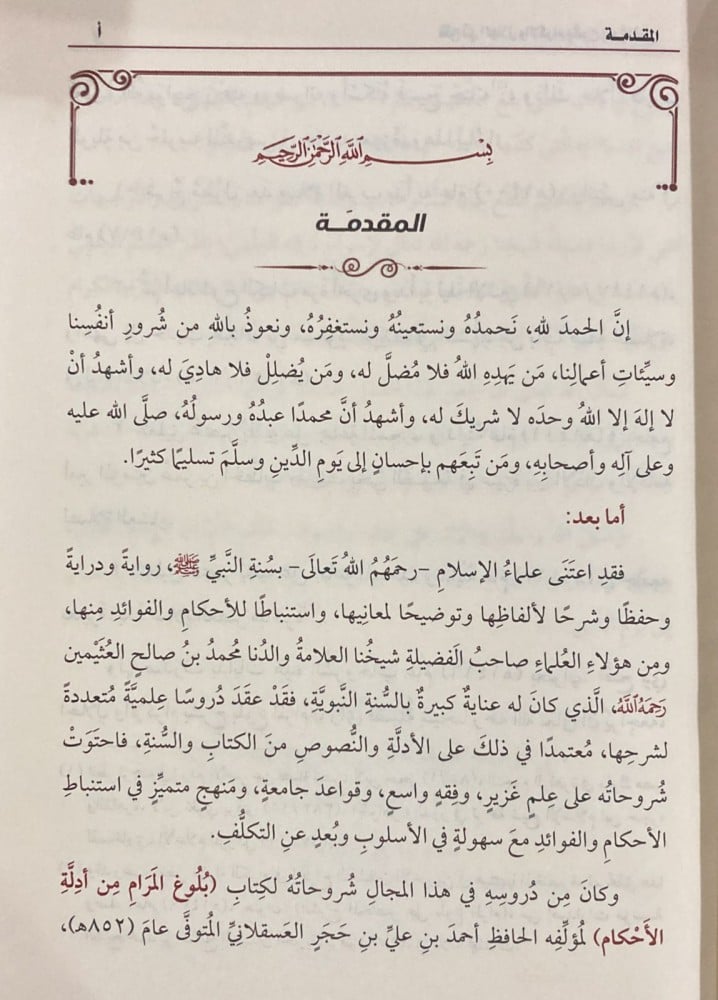 المقدمة أ
بِسْمِ اللَّهِ الرَّحْمَنِ الرَّحِيمِ
المقدمَـة
إنَّ الحمدَ للهِ، نَحمدُهُ ونستعينُهُ ونستغفِرُهُ، ونعوذُ باللهِ من شُرورِ أنفُسِنا
وسيِّئاتِ أعمالِنا، مَن يَهدِهِ اللهُ فلا مُضلَّ له، ومَن يُضلِلْ فلا هاديَ له، وأشهدُ أنْ
لا إلهَ إلا اللهُ وحدَه لا شريكَ له، وأشهدُ أنَّ محمدًا عبدُهُ ورسولُهُ، صلَّى الله عليه
وعلى آلِه وأصحابِهِ، ومَن تَبِعَهم بإحسانٍ إلى يَومِ الدِّينِ وسلَّمَ تسليمًا كثيرًا.
أما بعد:
فقدِ اعتَنَى علماءُ الإسلامِ -رحمَهُمُ اللهُ تَعالَى- بسُنةِ النَّبيِّ ﷺ، روايةً ودرايةً
وحفظًا وشرحًا لألفاظِها وتوضيحًا لمعانِيها، واستنباطًا للأحكامِ والفوائدِ مِنها،
ومِن هؤلاءِ العُلماءِ صاحبُ الفَضيلةِ شيخُنا العلامةُ والدُنا محمدُ بنُ صالحٍ العُثَيْمين
رَحِمَهُ اللَّهُ، الَّذي كانَ له عنايةٌ كبيرةٌ بالسُّنةِ النَّبويَّةِ، فقَدْ عقَدَ دُروسًا عِلميَّةً مُتعددةً
لشرحِها، مُعتمدًا في ذلكَ على الأدلَّةِ والنُّصوصِ منَ الكتابِ والسُّنةِ، فاحتَوَتْ
شُروحاتُه على عِلمٍ غَزيرٍ، وفِقهٍ واسعٍ، وقواعدَ جامعةٍ، ومَنهجٍ متميِّزٍ في استنباطِ
الأحكامِ والفوائدِ معَ سهولةٍ في الأسلوبِ وبُعدٍ عنِ التكلُّفِ.
وكانَ مِن دُروسِهِ في هذا المجالِ شُروحاتُهُ لكِتابِ (بُلُوغ المَرَامِ مِن أدِلَّةِ
الأَحْكام) لمُؤلِّفِه الحافظِ أحمدَ بنِ عليِّ بنِ حَجَرٍ العَسقلانيِّ المُتوفَّى عامَ (٨٥٢هـ)،